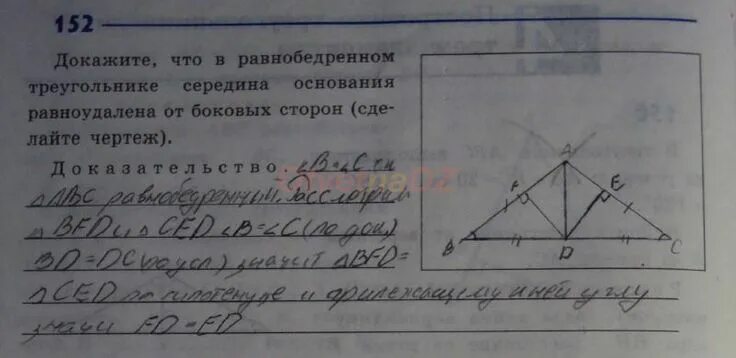 152
Докажите, что в равнобедренном
треугольнике середина основания
равноудалена от боковых сторон (сде-
лайте чертеж).
Доказательство. ∠B=∠C т.к
△ABC равнобедренный. Рассмотрим
△BFD и △CED ∠B=∠C (по док)
BD=DC (по усл) значит △BFD=
△CED по гипотенузе и прилежащему к ней углу
значит FD=ED
A
F
E
B
D
C